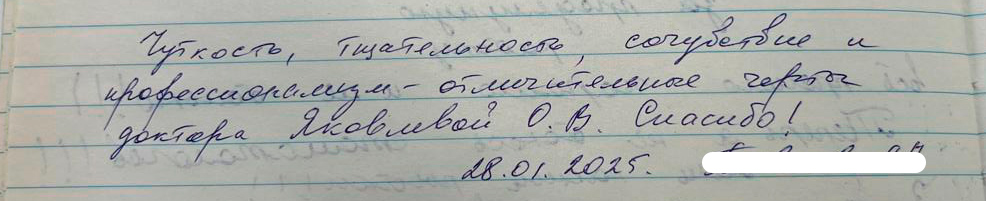 Чуткость, тщательность, сочувствие и
профессионализм - отличительные черты
доктора Яковлевой О.В. Спасибо!
28.01.2025.